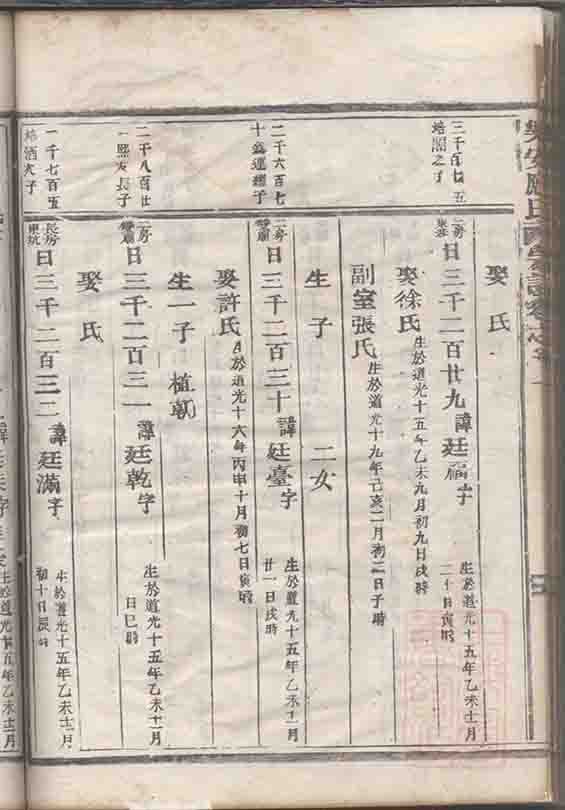 娶 氏
三千百 五
培閣之子
二房
東莊
日三千二百廿九 諱廷福字
生於道光十五年乙未十二月
二十日寅時
娶徐氏 生於道光十五年乙未九月初九日戌時
副室張氏 生於道光十九年己亥二月初二日子時
生子 二女
二千六百七
二房
日三千二百三十 諱廷臺字
生於道光十五年乙未十二月
廿一日戌時
娶許氏 生於道光十六年丙申十月初七日寅時
生一子 植
二千八百廿
一熙友長子
二房
日三千二百三一 諱廷乾字
生於道光十五年乙未十二月
日巳時
娶 氏
一千七百五
培酒次子
長房
東坑
日三千二百三二 諱廷滿字
生於道光十五年乙未十二月
初十日辰時